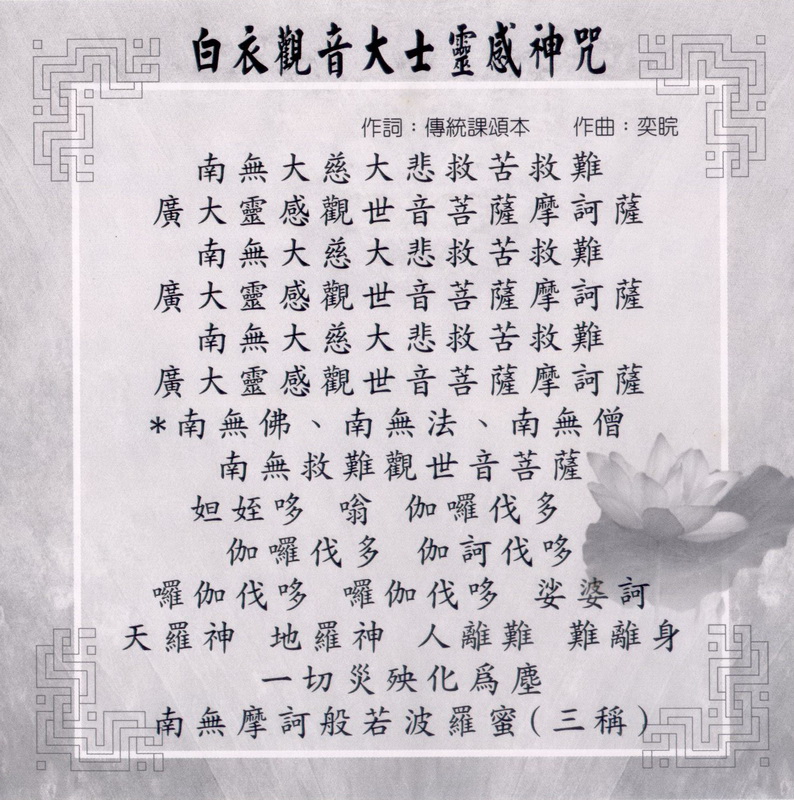 白衣觀音大士靈感神咒
作詞：傳統課頌本　作曲：奕睆
南無大慈大悲救苦救難
廣大靈感觀世音菩薩摩訶薩
南無大慈大悲救苦救難
廣大靈感觀世音菩薩摩訶薩
南無大慈大悲救苦救難
廣大靈感觀世音菩薩摩訶薩
*南無佛、南無法、南無僧
南無救難觀世音菩薩
妲姪哆　嗡　伽囉伐多
伽囉伐多　伽訶伐哆
囉伽伐哆　囉伽伐哆　娑婆訶
天羅神　地羅神　人離難　難離身
一切災殃化爲塵
南無摩訶般若波羅蜜(三稱)